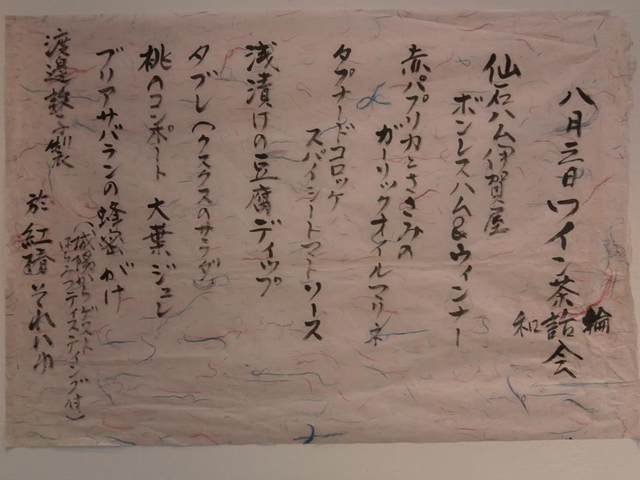 八月三日ワイン茶話会
和輪
仙石ハム伊賀屋
ボンレスハム&ウィンナー
赤パプリカとささみの
ガーリックオイルマリネ
タプナードコロッケ
スパイシートマトソース
浅漬けの豆腐ディップ
タブレ(クスクスのサラダ)
桃のコンポート 大葉ジュレ
ブリアサバランの蜂蜜がけ
(城陽からゲスト
はちみつテイスティング付)
渡邉設 製
於 紅 それいゆ